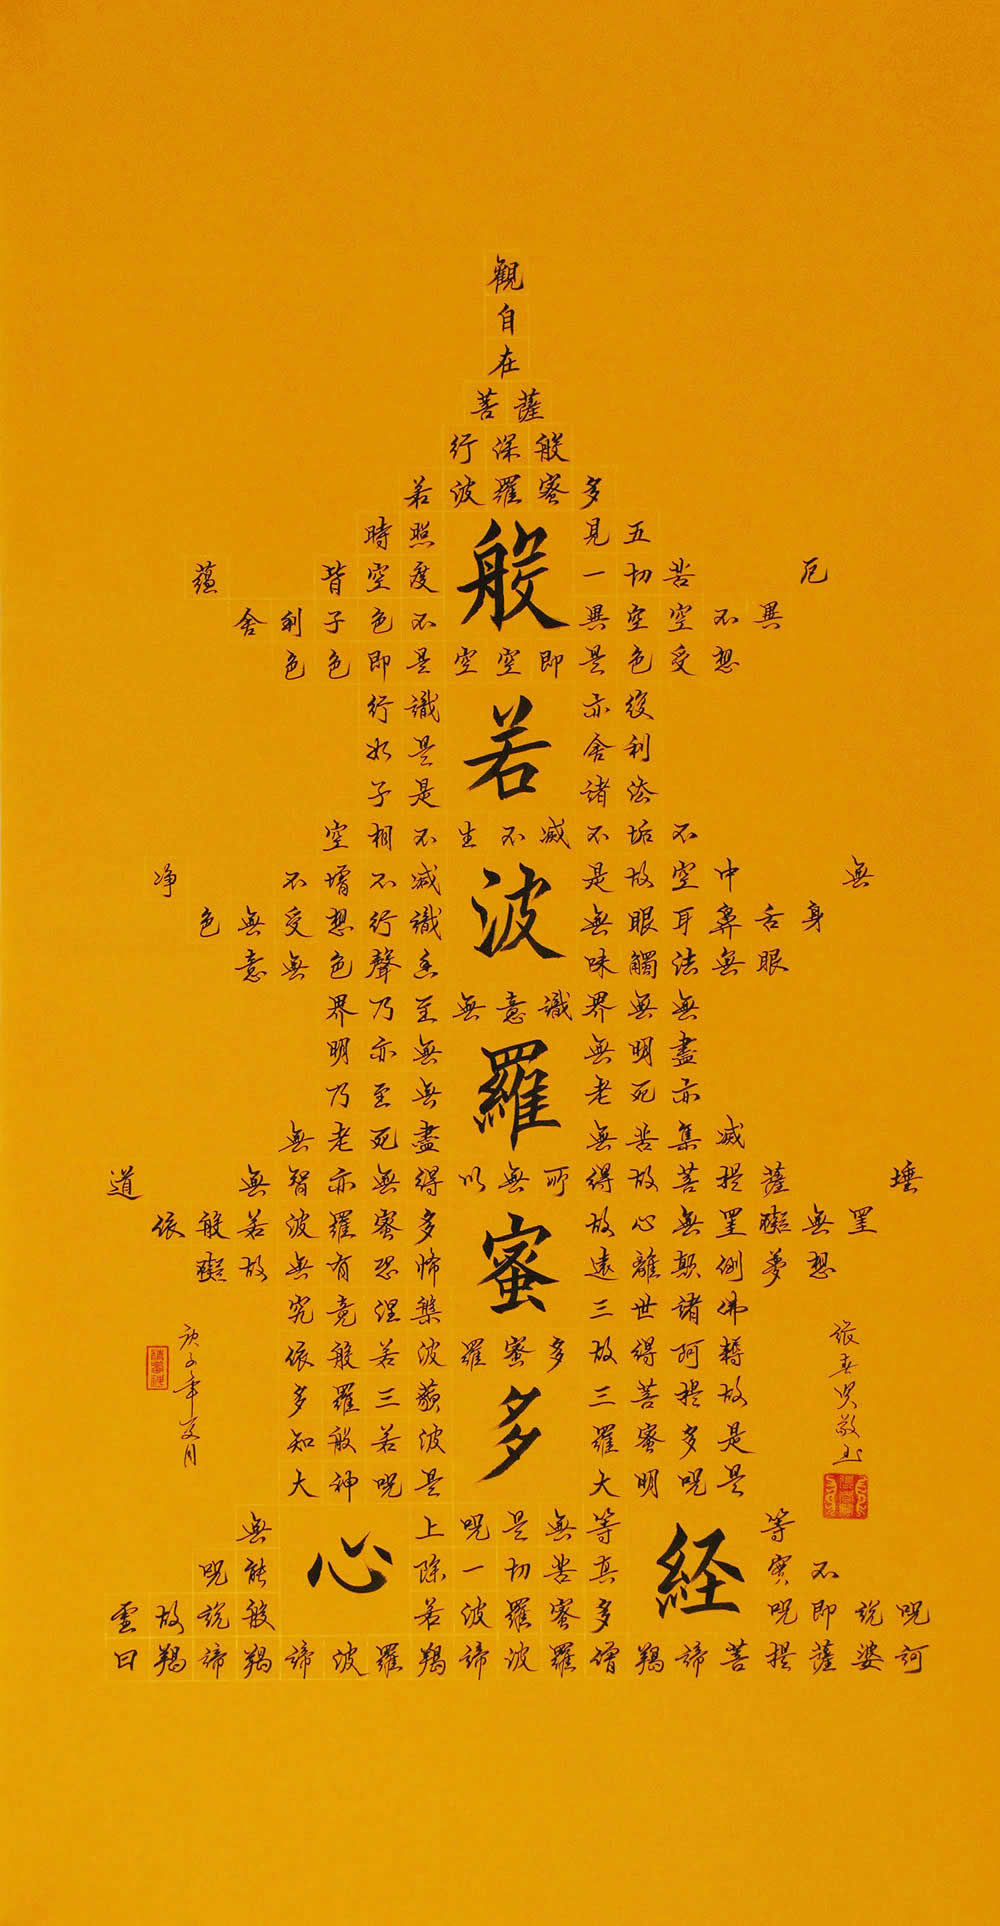 般若波羅蜜多心経
觀
自
在
菩薩
行深般
若波羅蜜多
時照見五
蘊皆空度一切苦厄
舍利子色不異空空不異
色色即是空空即是色受想
行識亦復
如是舍利
子是諸法
空相不生不滅不垢不
淨不增不減是故空中無
色無受想行識無眼耳鼻舌身
意無色聲香味觸法無眼
界乃至無意識界無無
明亦無無明盡
乃至無老死亦
無老死盡無苦集滅
道無智亦無得以無所得故菩提薩埵
依般若波羅蜜多故心無罣礙無罣
礙故無有恐怖遠離顛倒夢想
究竟涅槃三世諸佛
依般若波羅蜜多故得阿耨
多羅三藐三菩提故
知般若波羅蜜多是
大神咒是大明咒是
無上咒是無等等
咒能除一切苦真實不
虛故說般若波羅蜜多咒即說咒
曰羯諦羯諦波羅羯諦波羅僧羯諦菩提薩婆訶
庚子年夏月
張春敬书